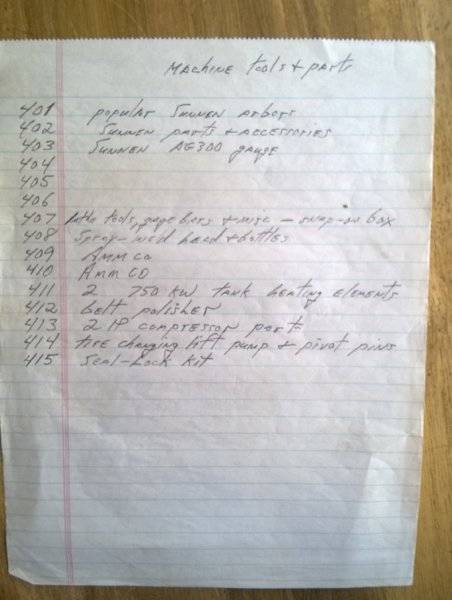 MACHINE tools + parts
401 popular SUNNEN arbors
402 SUNNEN parts + ACCESSORIES
403 SUNNEN AG300 gauge
404
405
406
407 lathe tools, gage bars + misc — snap-on box
408 Spray-weld head + bottles
409 AMMCO
410 AMMCO
411 2 750 KW tank heating elements
412 belt polisher
413 2 HP compressor parts
414 tire changing lift pump + pivot pins
415 Seal-Lock Kit